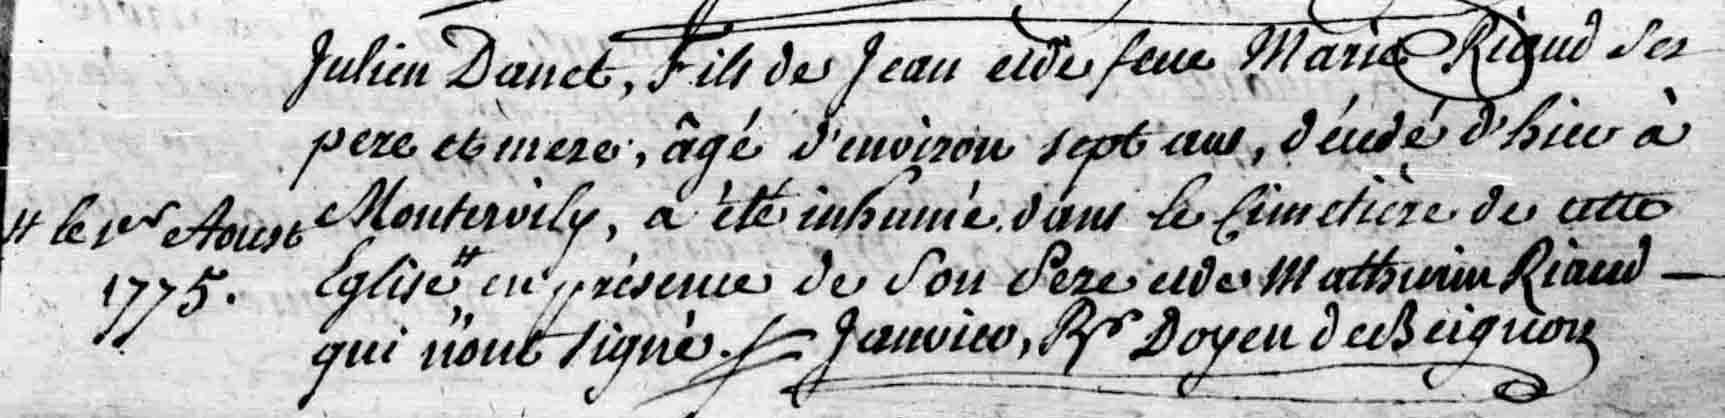 Julien Danet, Fils de Jean et de feue Marie Riaud ses
pere et mere, âgé d'environ sept ans, décédé d'hier à
Montervily, a été inhumé dans le Cimetière de cette
# le 1er Aoust
1775.
Eglise # en présence de Son Pere et de Mathurin Riaud —
qui n'ont signé. Janvier, Rr Doyen de Beignon